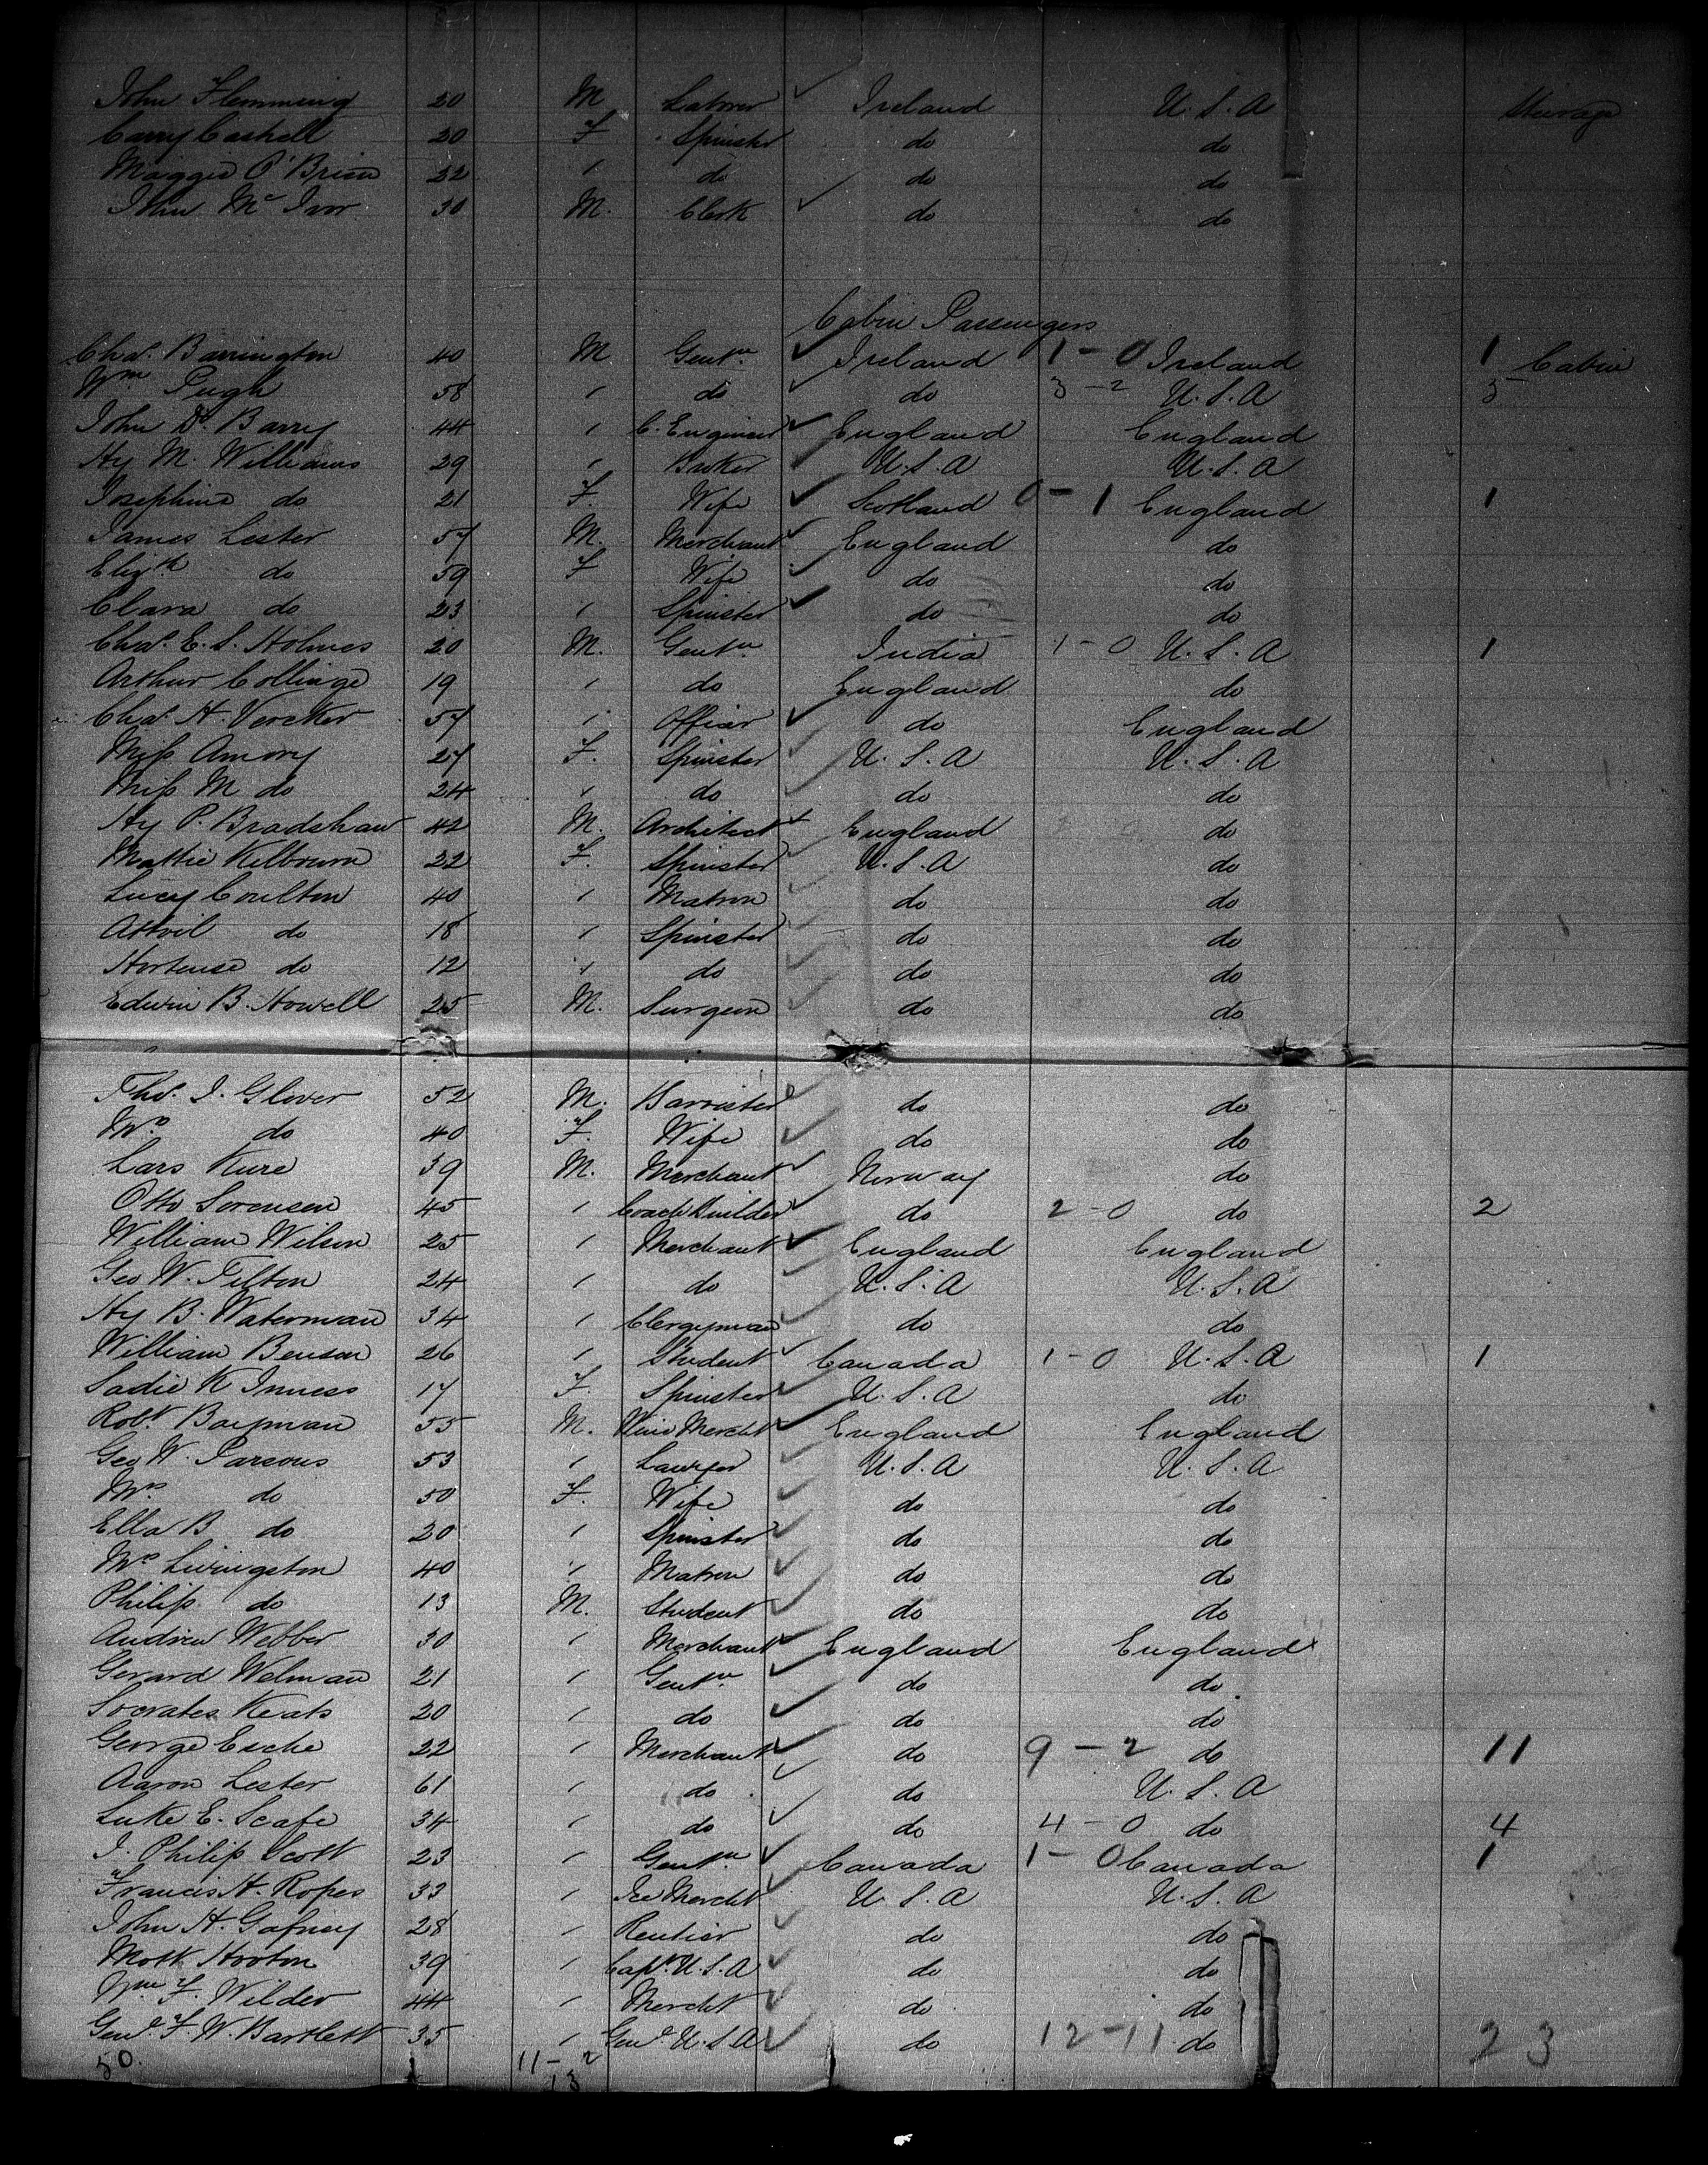 John Flemming 20 M Labrer Ireland U.S.A Steerage
Carry Cashell 20 F Spinster do do
Maggie O'Brien 22 " do do do
John McIvor 30 M. Clerk do do
Cabin Passengers
Chas. Barrington 40 M Gentn. Ireland 1-0 Ireland 1 Cabin
Wm Pugh 58 " do do 3-2 U.S.A 5
John D. Barry 44 " C. Engineer England England
Hy M. Williams 29 " Banker U.S.A U.S.A
Josephine do 21 F. Wife Scotland 0-1 England 1
James Lester 57 M. Merchant England do
Elizth do 59 F Wife do do
Clara do 23 " Spinster do do
Chas. E. S. Holmes 20 M. Gentn India 1-0 U.S.A 1
Arthur Collinge 19 " do England do
Chas. H. Vereker 57 " Officer do England
Miss Amory 27 F. Spinster U.S.A U.S.A
Miss M do 24 " do do do
Hy P. Bradshaw 42 M. Architect England do
Mattie Kilbourn 22 F. Spinster U.S.A do
Lucy Coulton 40 " Matron do do
do 18 " Spinster do do
Hortense do 12 " do do do
Edwin B. Howell 25 M. Surgeon do do
Thos. J. Glover 52 M. Barrister do do
Mrs do 40 F. Wife do do
Lars Kure 39 M. Merchant Norway do
Otto Sorensen 45 " Coach Builder do 2-0 do 2
William Wilson 25 " Merchant England England
Geo W. Tilton 24 " do U.S.A U.S.A
Hy B. Waterman 34 " Clergyman do do
William Benson 26 " Student Canada 1-0 U.S.A 1
Sadie K Inness 17 F. Spinster U.S.A do
Robt 55 M. Wine Mercht England England
Geo W. Parsons 53 " Lawyer U.S.A U.S.A
Mrs. do 50 F. Wife do do
Ella B do 20 " Spinster do do
Mrs Livingston 40 " Matron do do
Philip do 13 M. Student do do
Andrew Webber 30 " Merchant England England
Gerard Welman 21 " Gentn. do do
Socrates Keats 20 " do do do
George Esche 22 " Merchant do 9-2 do 11
Aaron Lester 61 " do do U.S.A
Luke E. Scafe 34 " do do 4-0 do 4
J. Philip Scott 23 " Gentn Canada 1-0 Canada 1
Francis H. Ropes 33 " Ice Mercht U.S.A U.S.A
John H. Gafney 28 " Rentier do do
Mott Hooton 39 " Capt. U.S.A do do
Wm F. Wilder 44 " Mercht do do
Genl. F. W. Bartlett 35 " Genl. U.S.A do 12-11 do 23
50. 11-2
13